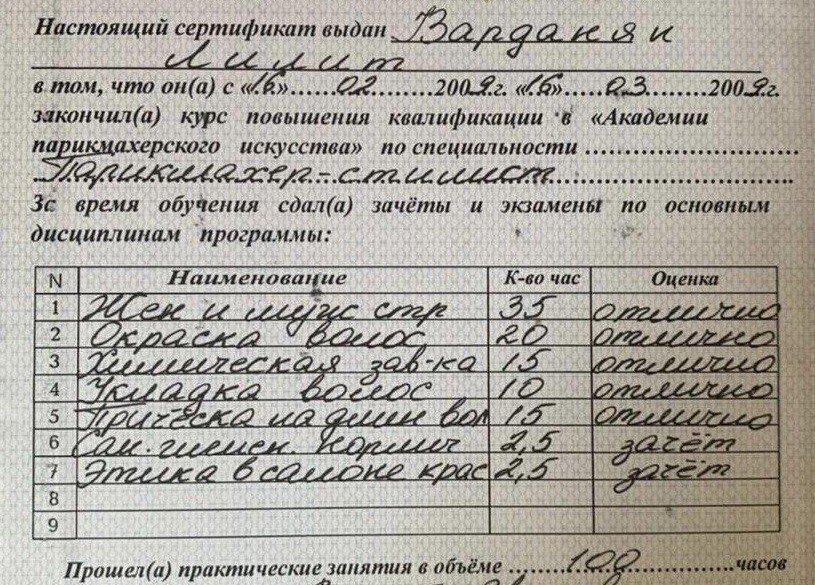 Настоящий сертификат выдан Варданян
Лилит
в том, что он(а) с «16»......02.........2009г. «16».....03........2009г.
закончил(а) курс повышения квалификации в «Академии
парикмахерского искусства» по специальности ..........................
Парикмахер-стилист
Зс время обучения сдал(а) зачёты и экзамены по основным
дисциплинам программы:
N Наименование К-во час Оценка
1 Жен и муж стр 35 отлично
2 Окраска волос 20 отлично
3 Химическая зав-ка 15 отлично
4 Укладка волос 10 отлично
5 Причёска на длин вол 15 отлично
6 Сан. гигиен. 2,5 зачёт
7 Этика в салоне крас 2,5 зачёт
8
9
Прошел(а) практические занятия в объёме ........100..................часов